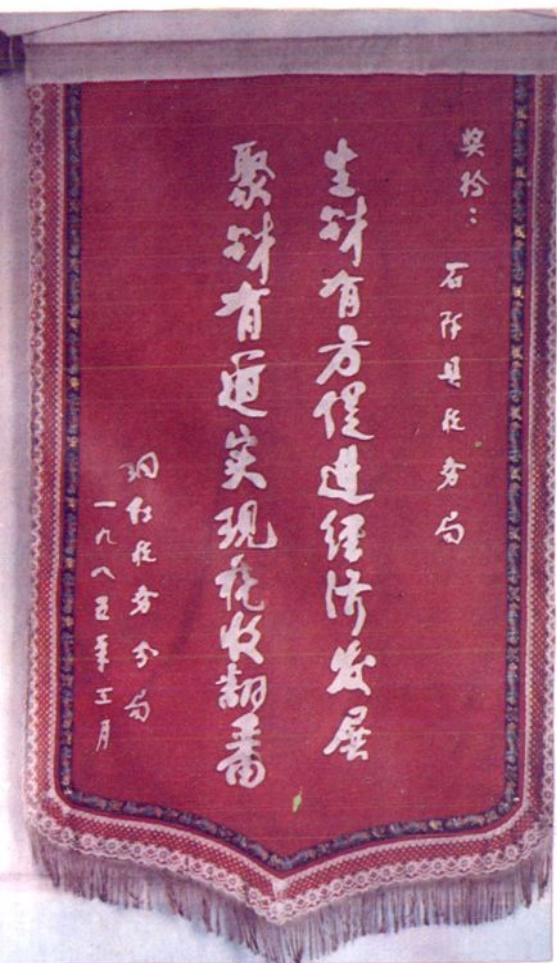 奖给：石阡县税务局
生财有方促进经济发展
聚财有道实现税收翻番
铜仁税务分局
一九八五年三月